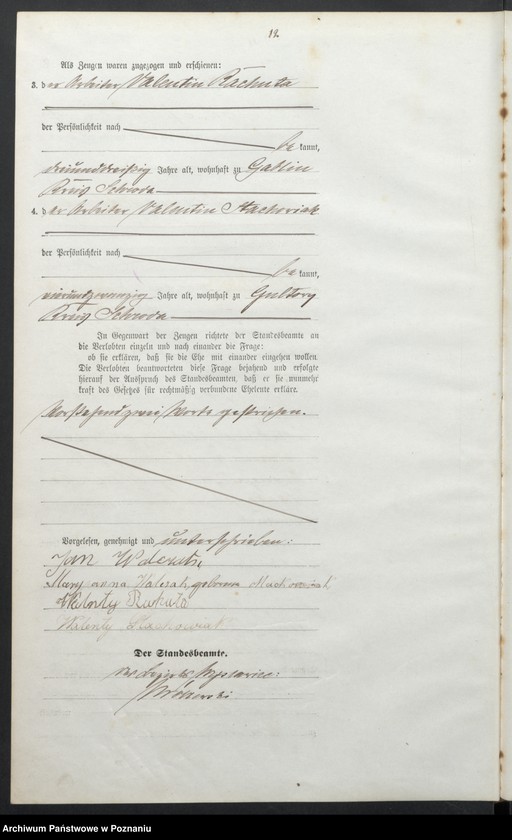 12.
Als Zeugen waren zugezogen und erschienen:
3. der Arbeiter Valentin Rachuta
der Persönlichkeit nach
be kannt,
dreiunddreißig Jahre alt, wohnhaft zu Gablin
Kreis Schroda
4. der Arbeiter Valentin Stachowiak
der Persönlichkeit nach
be kannt,
vierundzwanzig Jahre alt, wohnhaft zu Gultowy
Kreis Schroda
In Gegenwart der Zeugen richtete der Standesbeamte an
die Verlobten einzeln und nach einander die Frage:
ob sie erklären, daß sie die Ehe mit einander eingehen wollen.
Die Verlobten beantworteten diese Frage bejahend und erfolgte
hierauf der Ausspruch des Standesbeamten, daß er sie nunmehr
kraft des Gesetzes für rechtmäßig verbundene Eheleute erkläre.
Vorstehend zwei Worte gestrichen.
Vorgelesen, genehmigt und unterschrieben:
Jan
Maryanna geborene
Walenty Rakuta
Walenty Stachowiak
Der Standesbeamte.
Archiwum Państwowe w Poznaniu